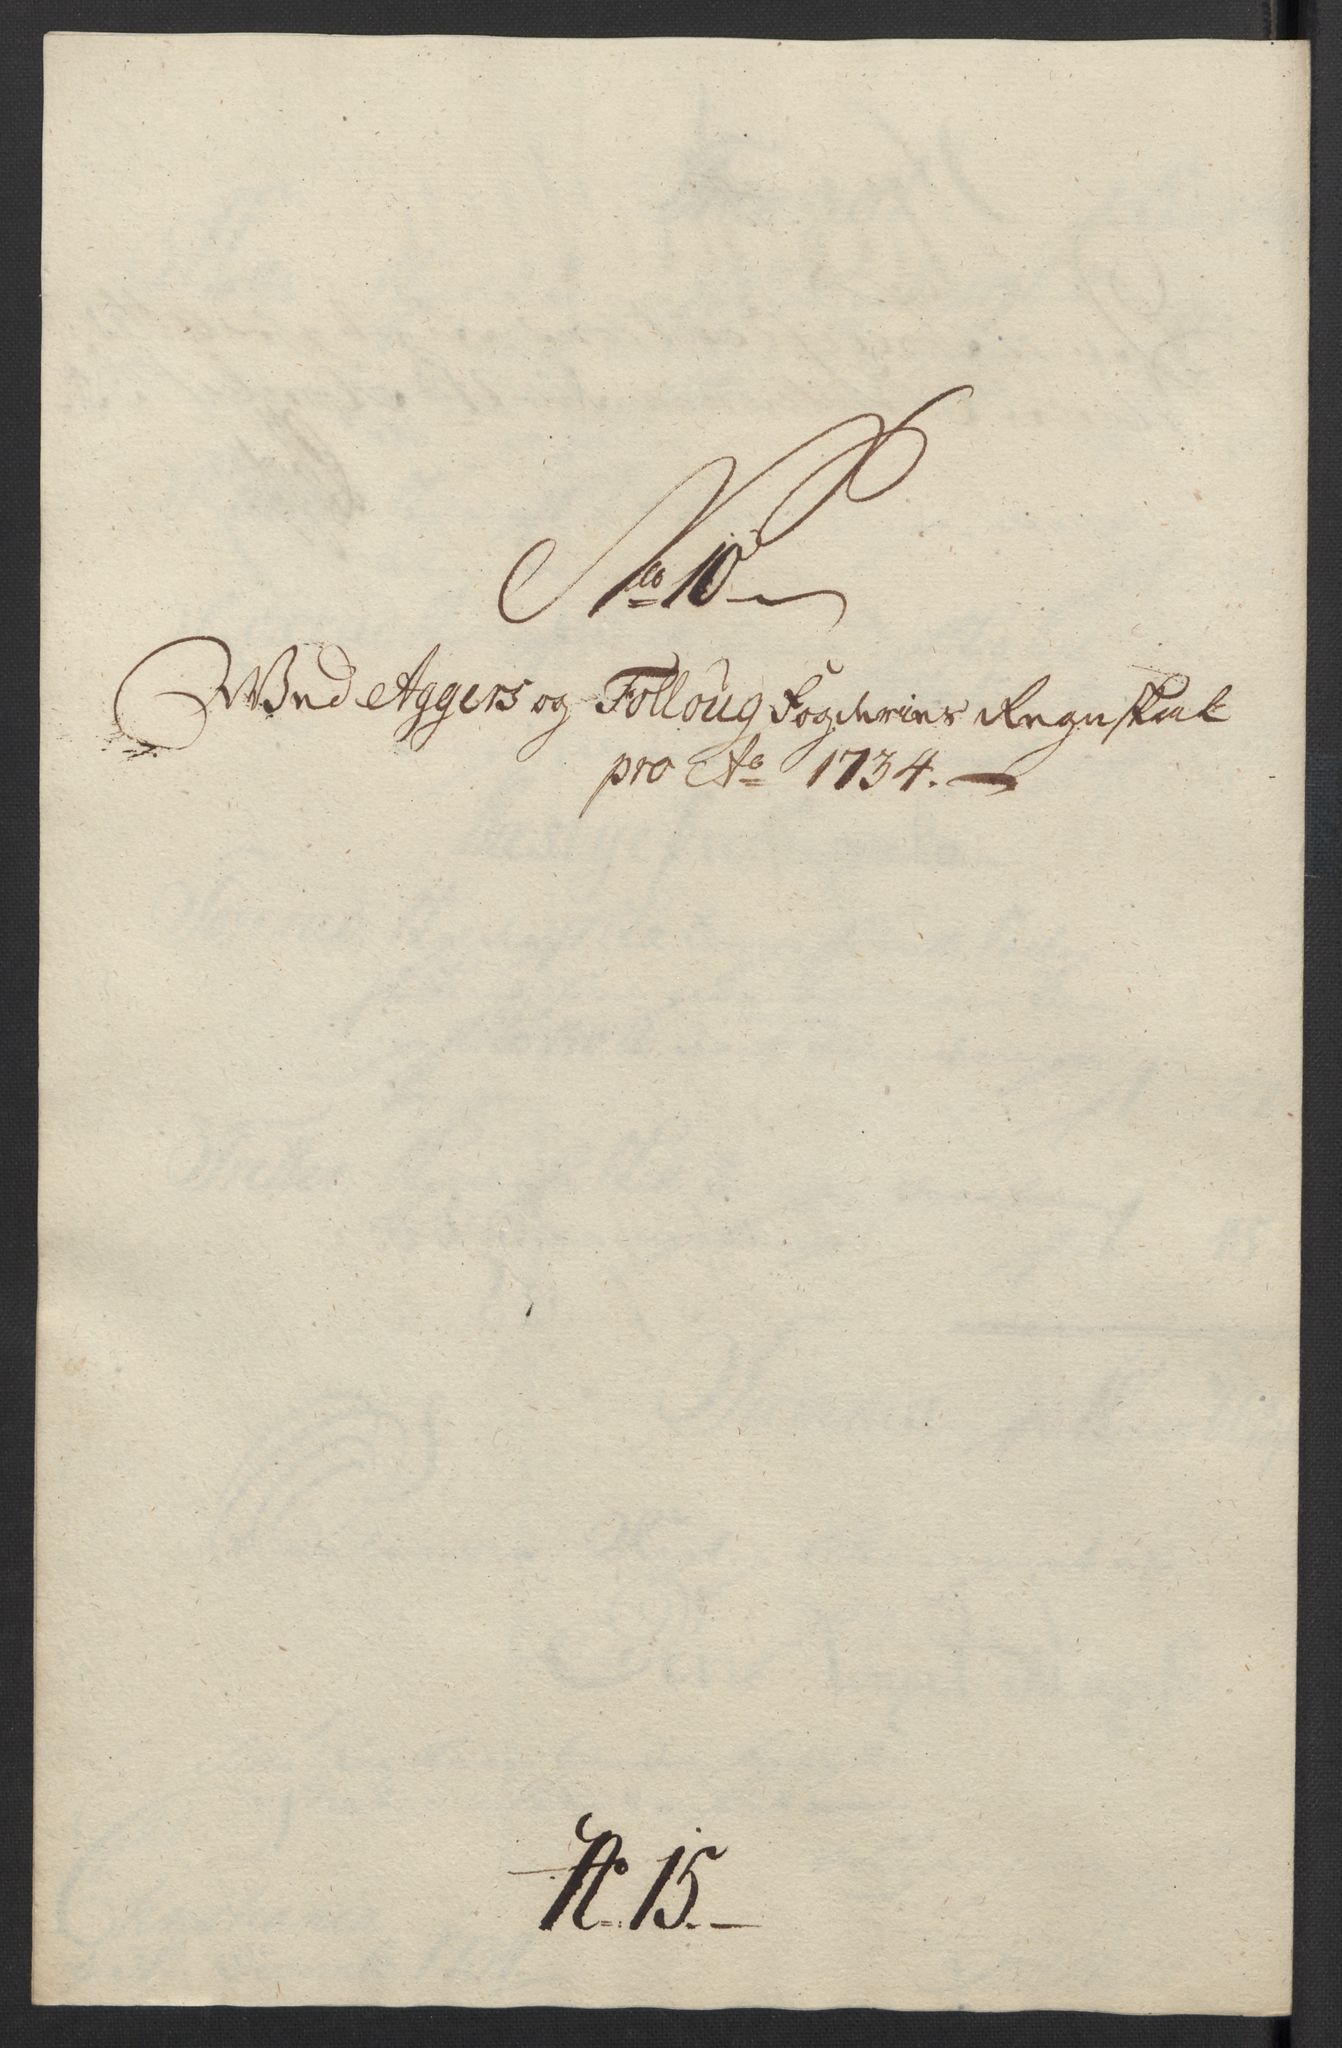 N:co 10
Wed Aggers og Follöug Fogderies Regnskab
pro Ao 1734.
No. 15.